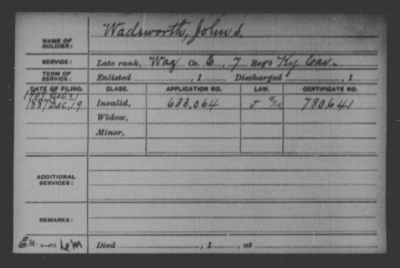 Wadsworth, John S.
NAME OF SOLDIER:
SERVICE: Late rank, Wag Co. E, 7 Reg't Ky Cav.
TERM OF SERVICE: Enlisted , 1 Discharged , 1
DATE OF FILING. CLASS. APPLICATION NO. LAW. CERTIFICATE NO.
1887 Dec. 19 Invalid, 633,064 J 780,641
Widow,
Minor,
ADDITIONAL SERVICES:
REMARKS:
Died , 1 , at